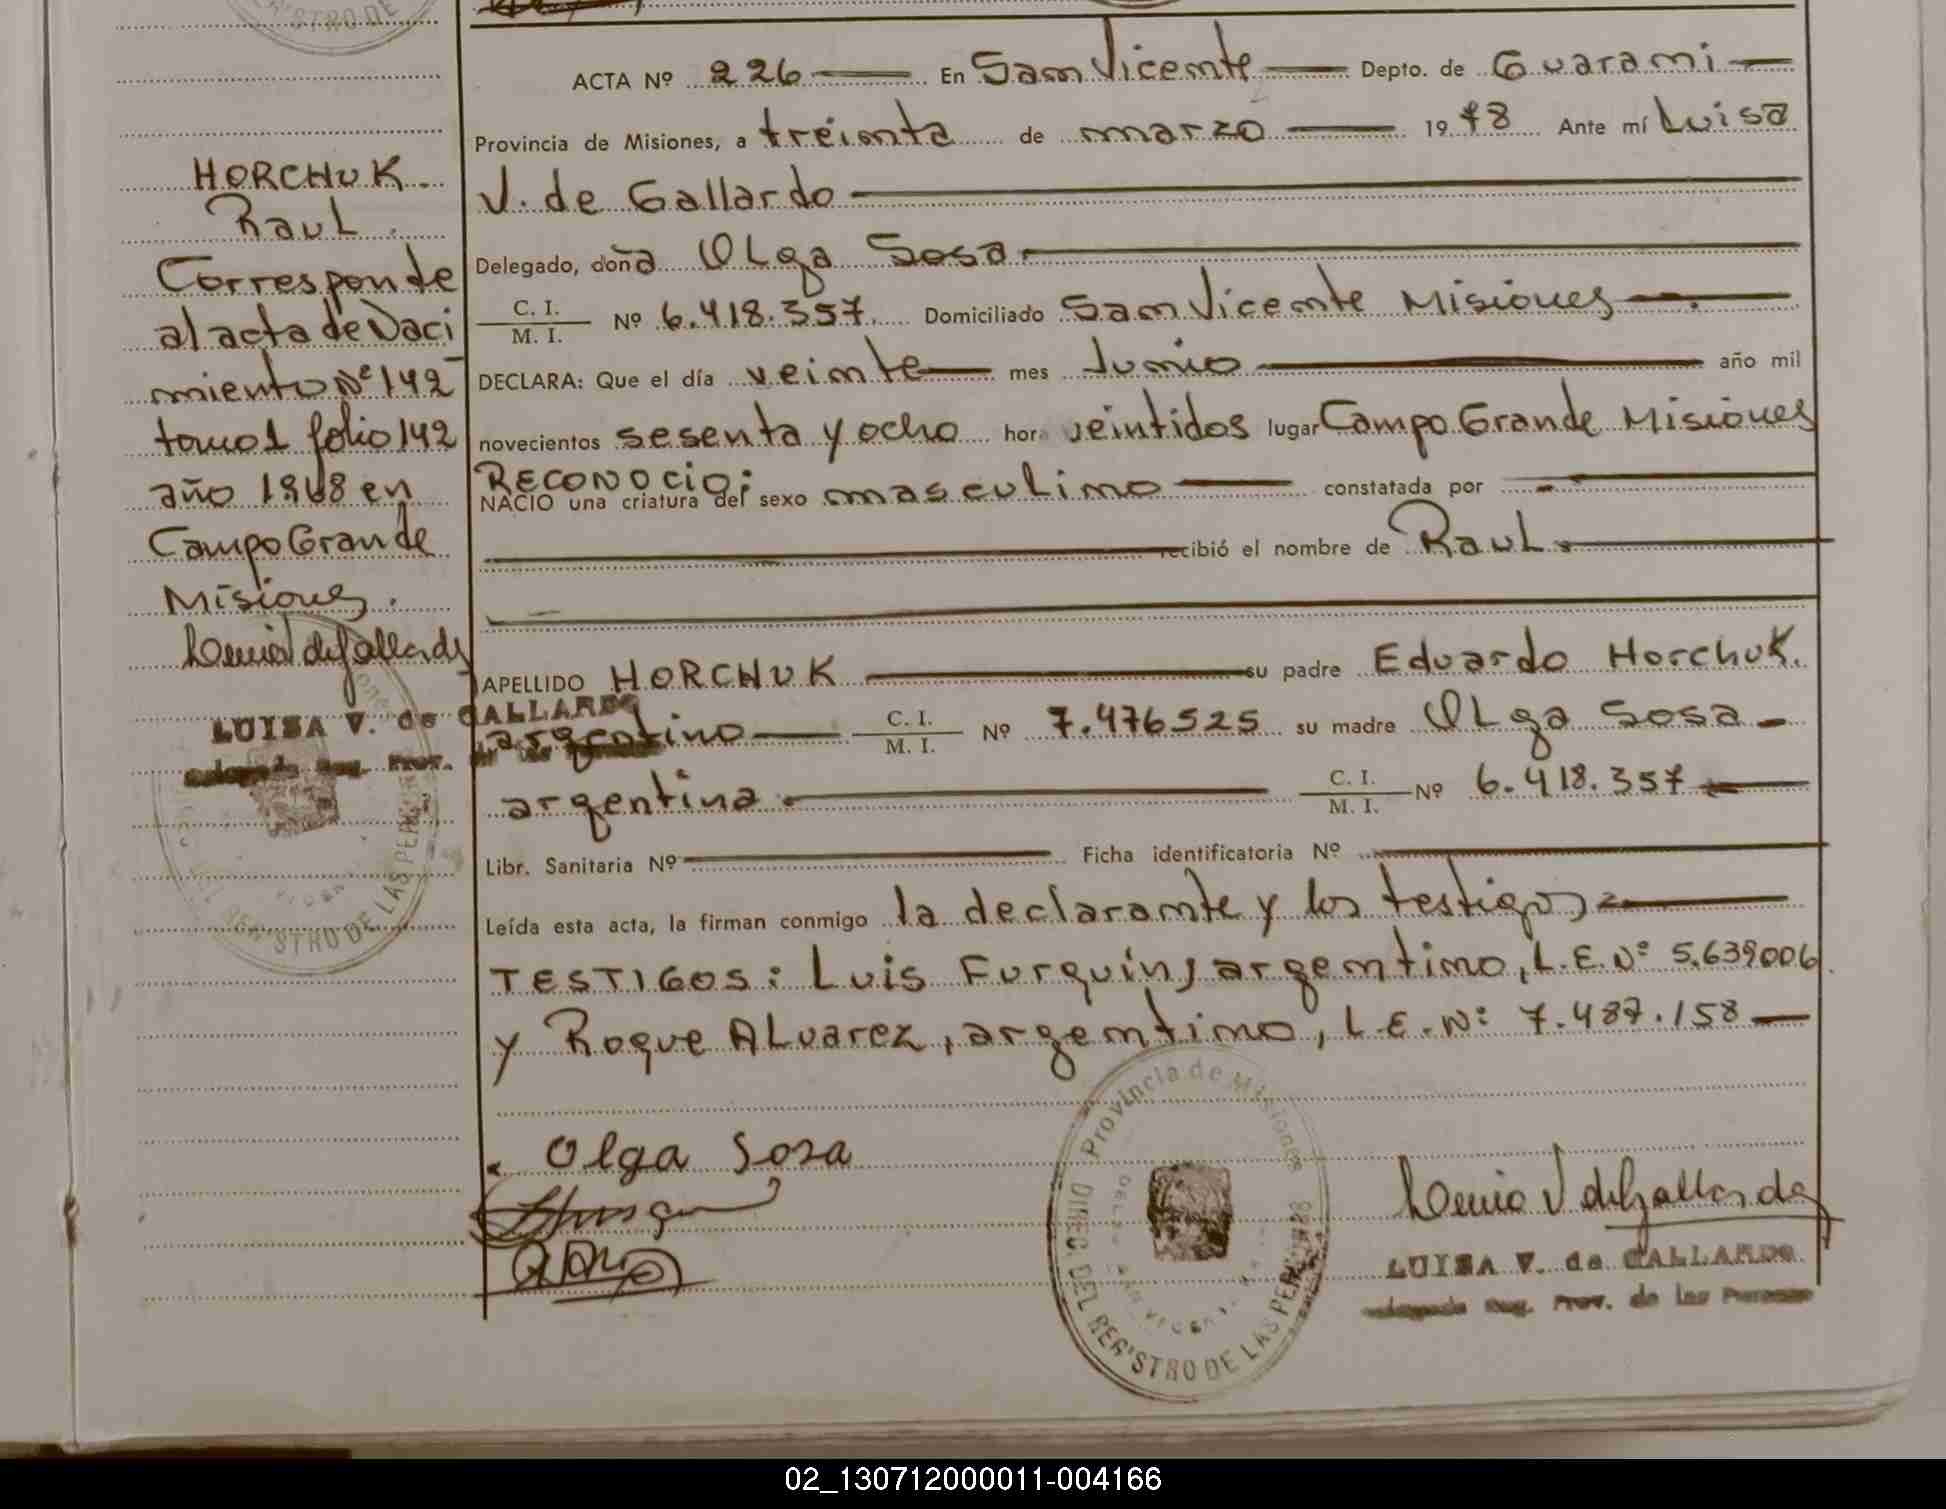 ACTA Nº 226 En San Vicente Depto. de Guarani
Provincia de Misiones, a treinta de marzo 1978 Ante mí Luisa
V. de Gallardo
Delegado, doña Olga Sosa
C. I. / M. I. Nº 6.418.357. Domiciliado San Vicente Misiones
DECLARA: Que el día veinte mes Junio año mil
novecientos sesenta y ocho hora veintidos lugar Campo Grande Misiones
RECONOCIO:
NACIO una criatura del sexo masculino constatada por
recibió el nombre de Raul
APELLIDO HORCHUK su padre Eduardo Horchuk.
argentino C. I. / M. I. Nº 7.476525 su madre Olga Sosa
argentina C. I. / M. I. Nº 6.418.357
Libr. Sanitaria Nº Ficha identificatoria Nº
Leída esta acta, la firman conmigo la declarante y los testigos
TESTIGOS: Luis Furquin, argentino, L.E.Nº 5.639006
y Roque Alvarez, argentino, L.E.Nº 7.487.158
Olga Sosa
Luisa V de Gallardo
LUISA V. de GALLARDO
Provincia de Misiones
DIREC. DEL REGISTRO DE LAS PERSONAS
HORCHUK
Raul.
Corresponde
al acta de Naci
miento Nº 142
tomo 1 folio 142
año 1968 en
Campo Grande
Misiones.
Luisa V de Gallardo
LUISA V. de GALLARDO
REGISTRO DE LAS PER
02_130712000011-004166